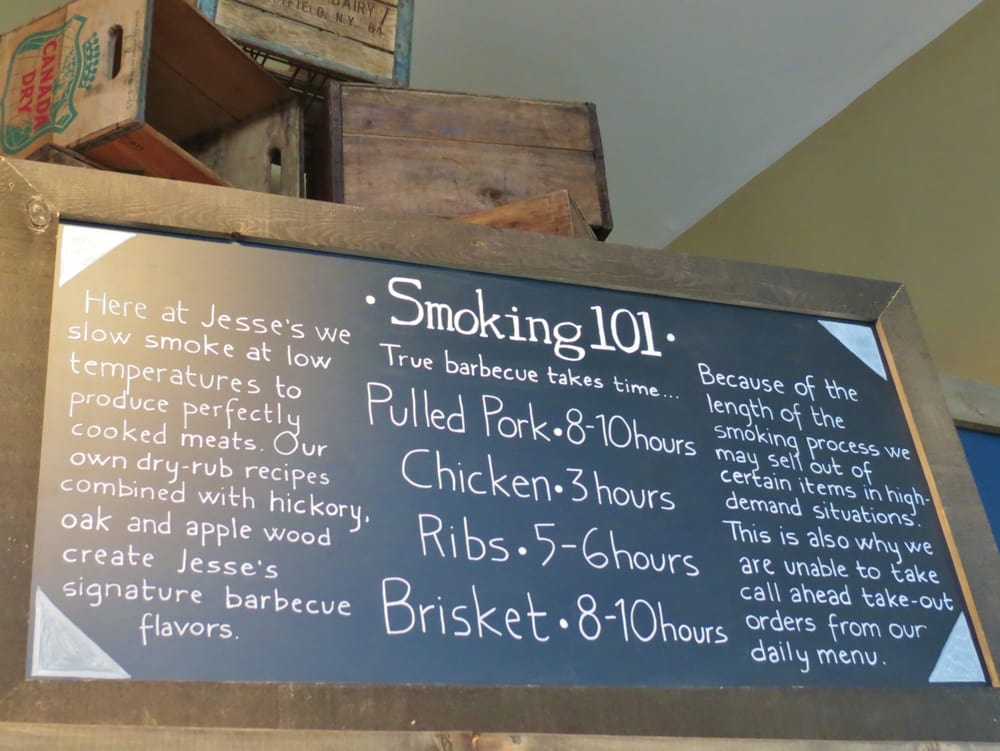 DAIRY
N.Y. 64
CANADA
DRY
Here at Jesse's we
slow smoke at low
temperatures to
produce perfectly
cooked meats. Our
own dry-rub recipes
combined with hickory,
oak and apple wood
create Jesse's
signature barbecue
flavors.
• Smoking 101 •
True barbecue takes time...
Pulled Pork • 8-10 hours
Chicken • 3 hours
Ribs • 5-6 hours
Brisket • 8-10 hours
Because of the
length of the
smoking process we
may sell out of
certain items in high-
demand situations.
This is also why we
are unable to take
call ahead take-out
orders from our
daily menu.